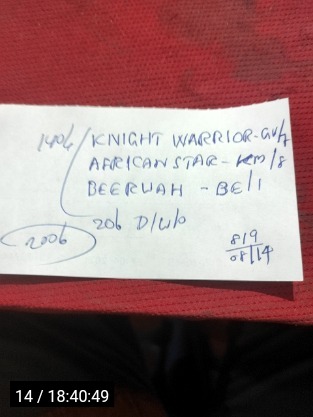 140/- KNIGHT WARRIOR - GW/7
AFRICAN STAR - KM/8
BEERWAH - BE/1
20/- D/W/P
200/-
819
08/14
14 / 18:40:49